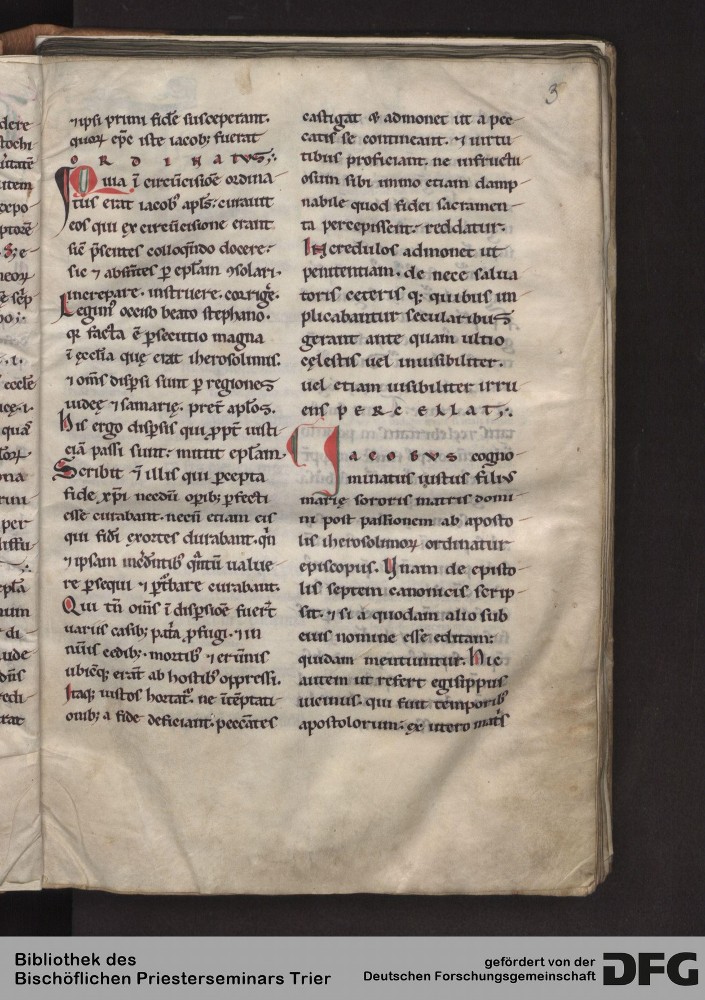 3
⁊ipsi primi fidē susceperant.
quoꝝ ep̄c iste iacob; fuerat
ORDINATVS;.
Quia ī circūcisiōe ordina
tus erat iacob' apl̄s: curauit
eos qui ex circūcisione erant
sic p̄sentes colloq̄ndo docere:
sic ⁊ absētes ꝑ ep̄lam ꝯsolari.
increpare. instruere. corrigē.
Legim' occiso beato stephano.
qꝛ facta ē ꝑsecutio magna
ī ęcclīa quę erat iherosolimis.
⁊ om̄s disꝑsi sunt ꝑ regiones
iudeę ⁊ samarię. pret̄ apl̄os.
his ergo disꝑsis qui ꝓpt̄ iusti
ciā passi sunt: mittit ep̄lam
Scribit ⁊̄ illis qui ꝑcepta
fide xp̄i necdū oꝑib; ꝑfecti
esse curabant. necn̄ etiam eis
qui fidī exortes durabant. q̄n
⁊ ipsam
re ꝑsequi ⁊ ꝑt̄bare curabant.
Qui tn̄ om̄s ī disꝑsiōe fuer̄t
uariis casib; pat̄a ꝓfugi. ⁊ in
nūīs cedib;. mortib' ⁊ erūnis
ubicūq; erāt ab hostib' oppressi.
Itaq; iustos hortat̄. ne ītēptati
onib; a fide deficiant. peccātes
castigat & admonet ut a pec
catis se contineant. ⁊ uirtu
tibus proficiant. ne infructu
osum sibi immo etiam damp
nabile quod fidei sacramen
ta percepissent: reddatur.
Incredulos admonet ut
penitentiam. de nece salua
toris ceteris q; quibus im
plicabantur secularibus
gerant ante quam ultio
cęlestis uel inuisibiliter.
uel etiam uisibiliter irru
ens PERCELLAT;.
IACOBVS cogno
minatus iustus filius
marię sororis matris domi
ni post passionem ab aposto
lis iherosolimoꝝ ordinatur
episcopus. Vnam de episto
lis septem canonicis scrip
sit. ⁊ si a quodam alio sub
eius nomine esse editam:
quidam mentiuntur. Hic
autem ut refert egisippus
uicinus. qui fuit temporib'
apostolorum: ex utero mat̄s
Bibliothek des
Bischöflichen Priesterseminars Trier
gefördert von der
Deutschen Forschungsgemeinschaft
DFG